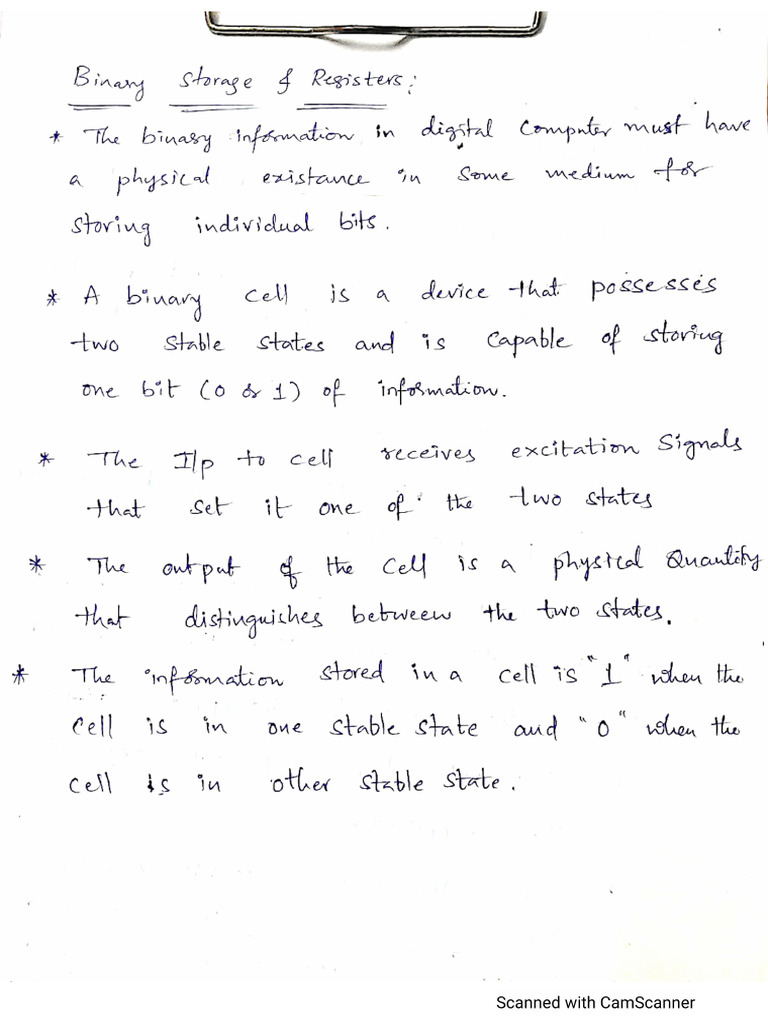 Binary Storage & Registers:
* The binary information in digital Computer must have
a physical existance in some medium for
storing individual bits.
* A binary cell is a device that possesses
two stable states and is capable of storing
one bit (0 or 1) of information.
* The I/p to cell receives excitation signals
that set it one of the two states
* The output of the cell is a physical Quantity
that distinguishes between the two states.
* The information stored in a cell is "1" when the
cell is in one stable state and "0" when the
cell is in other stable state.
Scanned with CamScanner